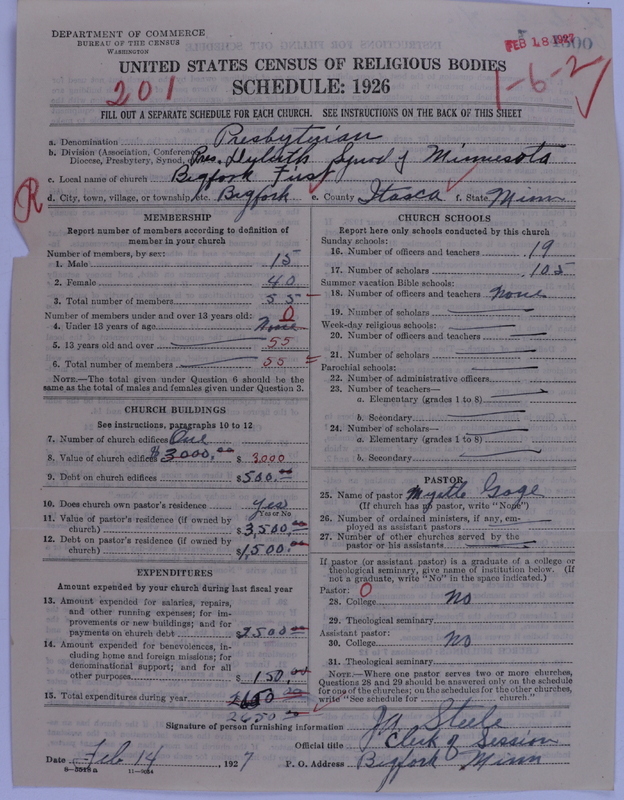 DEPARTMENT OF COMMERCE
BUREAU OF THE CENSUS
WASHINGTON
FEB 18 1927
UNITED STATES CENSUS OF RELIGIOUS BODIES
SCHEDULE: 1926
201
1-6-2
FILL OUT A SEPARATE SCHEDULE FOR EACH CHURCH. SEE INSTRUCTIONS ON THE BACK OF THIS SHEET
a. Denomination Presbyterian
b. Division (Association, Conference, Diocese, Presbytery, Synod, Pres. Duluth Synod of Minnesota
c. Local name of church Bigfork First
d. City, town, village, or township, etc. Bigfork e. County Itasca f. State Minn
R
MEMBERSHIP
Report number of members according to definition of member in your church
Number of members, by sex:
1. Male 15
2. Female 40
3. Total number of members 55
Number of members under and over 13 years old:
4. Under 13 years of age None 0
5. 13 years old and over 55
6. Total number of members 55
NOTE.—The total given under Question 6 should be the same as the total of males and females given under Question 3.
CHURCH BUILDINGS
See instructions, paragraphs 10 to 12
7. Number of church edifices One
8. Value of church edifices $3000,00 $ 3,000
9. Debt on church edifices $500,00
10. Does church own pastor's residence Yes
Yes or No
11. Value of pastor's residence (if owned by church) $3,500,00
12. Debt on pastor's residence (if owned by church) $1,500.00
EXPENDITURES
Amount expended by your church during last fiscal year
13. Amount expended for salaries, repairs, and other running expenses; for improvements or new buildings; and for payments on church debt $2500,00
14. Amount expended for benevolences, including home and foreign missions; for denominational support; and for all other purposes $150,00
15. Total expenditures during year
2650
CHURCH SCHOOLS
Report here only schools conducted by this church
Sunday schools:
16. Number of officers and teachers 19
17. Number of scholars 105
Summer vacation Bible schools:
18. Number of officers and teachers None
19. Number of scholars
Week-day religious schools:
20. Number of officers and teachers
21. Number of scholars
Parochial schools:
22. Number of administrative officers
23. Number of teachers—
a. Elementary (grades 1 to 8)
b. Secondary
24. Number of scholars—
a. Elementary (grades 1 to 8)
b. Secondary
PASTOR
25. Name of pastor Myrtle Goge
(If church has no pastor, write "None")
26. Number of ordained ministers, if any, employed as assistant pastors
27. Number of other churches served by the pastor or his assistants
If pastor (or assistant pastor) is a graduate of a college or theological seminary, give name of institution below. (If not a graduate, write "No" in the space indicated.)
Pastor: 0
28. College No
29. Theological seminary
Assistant pastor:
30. College No
31. Theological seminary
NOTE.—Where one pastor serves two or more churches, Questions 28 and 29 should be answered only on the schedule for one of the churches; on the schedules for the other churches, write "See schedule for church."
Signature of person furnishing information J A Steele
Official title Clerk of Session
Date Feb 14 1927 P. O. Address Bigfork Minn
8—5518a 11—9084